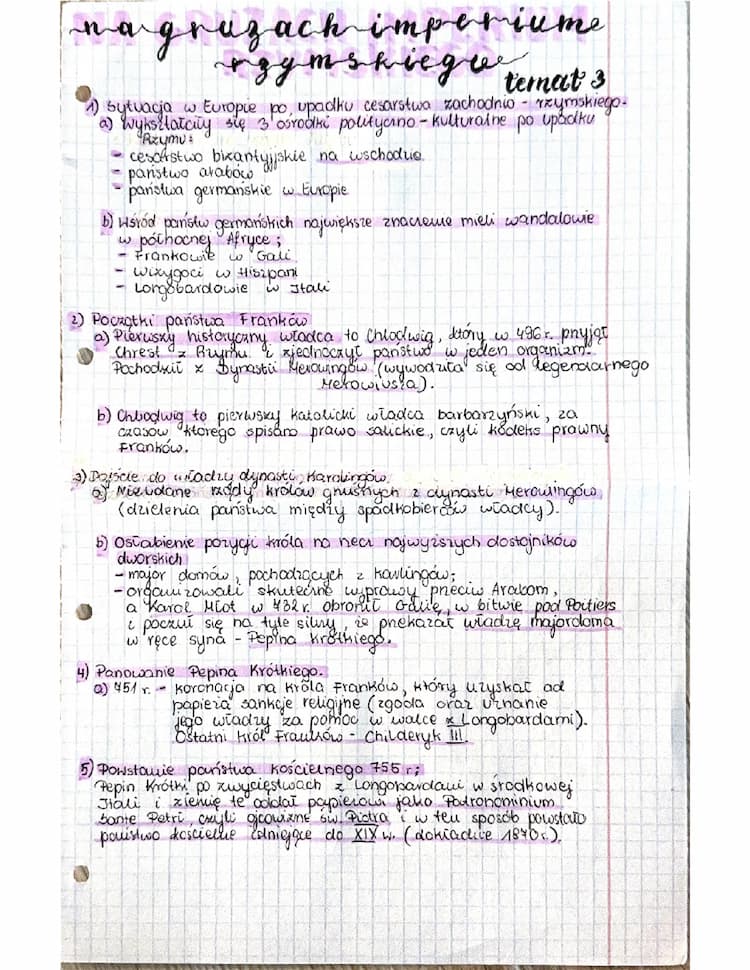 na gruzach imperium
rzymskiego
temat 3
1) Sytuacja w Europie po upadku cesarstwa zachodnio-rzymskiego.
a) Wykształciły się 3 ośrodki polityczno-kulturalne po upadku
Rzymu:
- cesarstwo bizantyjskie na wschodzie
- państwo arabów
- państwa germańskie w Europie
b) Wśród państw germańskich największe znaczenie mieli wandalowie
w północnej Afryce;
- Frankowie w Gali
- Wizygoci w Hiszpani
- Longobardowie w Itali
2) Początki państwa Franków
a) Pierwszy historyczny władca to Chlodwig, który w 496 r. przyjął
Chrest z Rzymu i zjednoczył państwo w jeden organizm.
Pochodził z Dynastii Merowingów (wywodziła się od legendarnego
Merowiusza).
b) Chlodwig to pierwszy katolicki władca barbarzyński, za
czasów którego spisano prawo salickie, czyli kodeks prawny
Franków.
3) Dojście do władzy dynasti Karolingów
a) Nieudane rządy królów gnuśnych z dynasti Merowingów
(dzielenia państwa między spadkobierców władcy).
b) Osłabienie pozycji króla na recz najwyższych dostojników
dworskich
- major domów, pochodzących z
- organizowali skuteczne wyprawy przeciw Arabom,
a Karol Młot w 732 r. obronił Galię, w bitwie pod Poitiers
i poczuł się na tyle silny, że przekazał władzę majordoma
w ręce syna - Pepina Krótkiego.
4) Panowanie Pepina Krótkiego.
a) 751 r. - koronacja na króla Franków, który uzyskał od
papieża sankcje religijne (zgoda oraz uznanie
jego władzy za pomoc w walce z Longobardami).
Ostatni król Franków - Childeryk III.
5) Powstanie państwa kościelnego 755 r;
Pepin Krótki po zwycięstwach z Longobardami w środkowej
Itali i ziemię te oddał papieżowi jako
Sante Petri, czyli ojcowiznę św. Piotra i w ten sposób powstało
państwo kościelne istniejące do XIX w. (dokładnie 1870 r.).